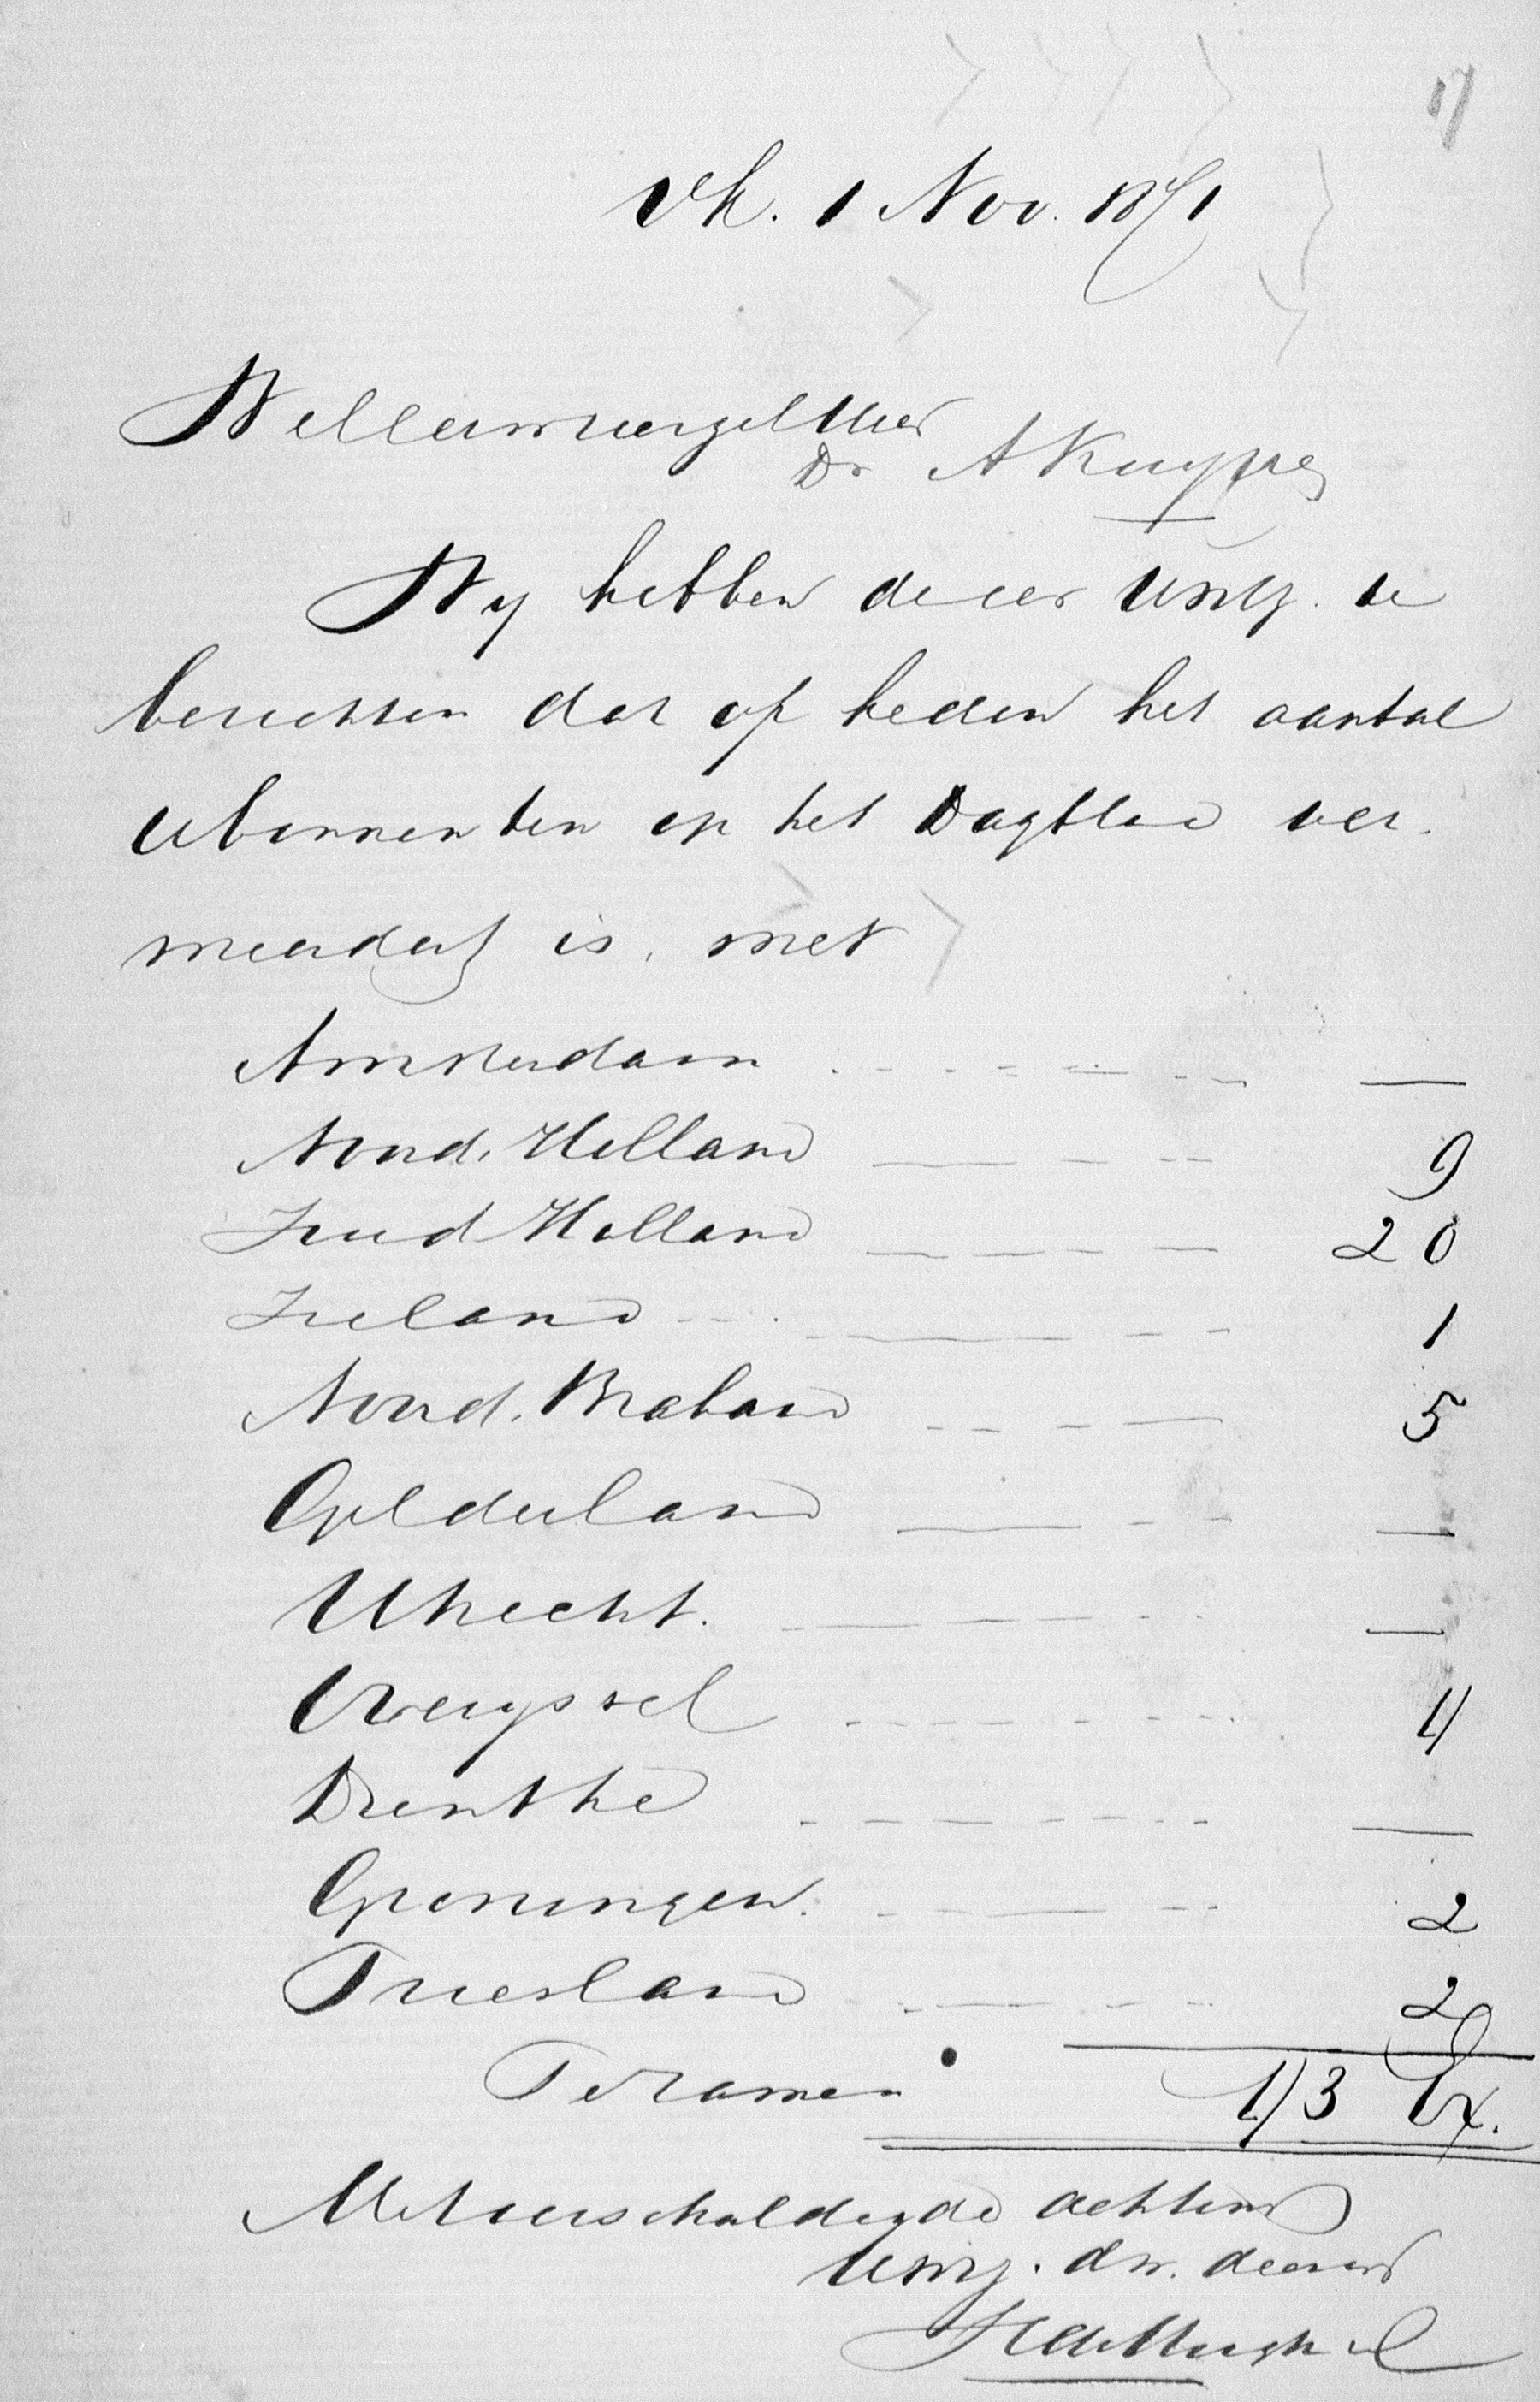 17
Ut. 1 Nov. 1871
WelEerwaarzel Heer
Dr A Kuyper
Wy hebben de eer UwEz. te
berichten dat op heden het aantal
Abonnenten op het Dagblad ver-
meerderd is, met
Amsterdam —
Noord. Holland 9
Zuid Holland 20
Zeeland 1
Noord. Braband 5
Gelderland —
Utrecht. —
Overyssel 4
Drenthe —
Groningen. 2
Friesland 2
Te zamen 43 Ex.
Met verschuldigde achting
UwEz. dw. dienaar